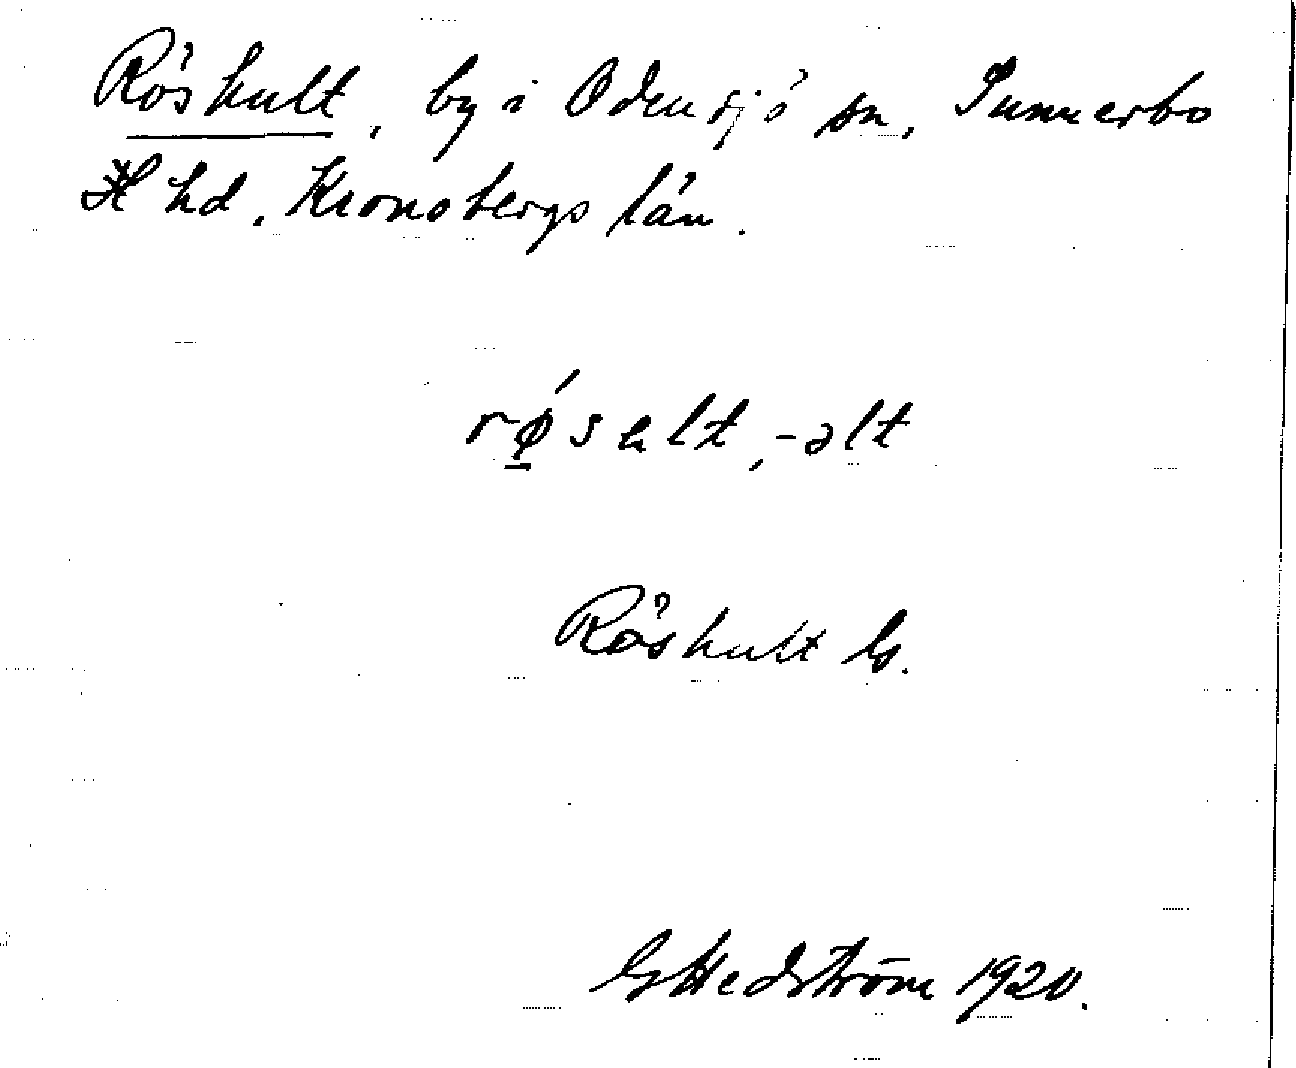 Röshult, by i Odensjö sn, Sunnerbo
hd, Kronobergs län.
rǿ̱sult, -əlt
Röshult G.
G Hedström 1920.